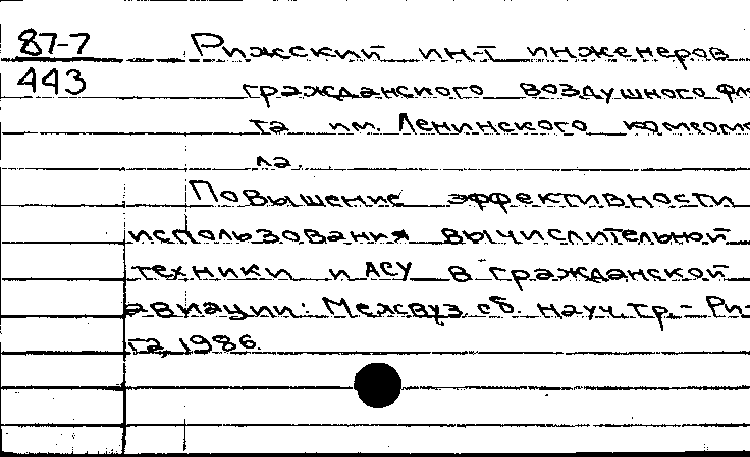 87-7 Рижский ин-т инженеров
443 гражданского воздушного фло
та им. Ленинского комсомо
ла.
Повышение эффективности
использования вычислительной
техники и АСУ в гражданской
авиации: Межвуз. сб. науч. тр. - Ри-
га, 1986.